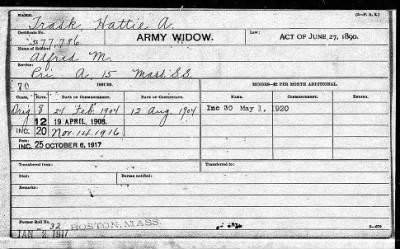 NAME:
Trask, Hattie A.
Certificate No.
577,786
ARMY WIDOW.
Law:
ACT OF JUNE, 27, 1890.
Name of Soldier:
Alfred M.
Service:
Pri A, 15 Mass SS.
ISSUES.
MINORS—$2 PER MONTH ADDITIONAL.
CLASS.
RATE.
DATE OF COMMENCEMENT.
DATE OF CERTIFICATE.
NAME.
COMMENCING.
ENDING.
Orig 8 24 Feb 1904 12 Aug 1904
Inc 30 May 1, 920
12 19 APRIL, 1908.
INC. 20 Nov. 14. 1916
INC. 25 OCTOBER 6, 1917
Transferred from:
Transferred to:
Died:
Bureau notified:
Remarks:
Former Roll No. 32
BOSTON, MASS.
JAN 2 1917